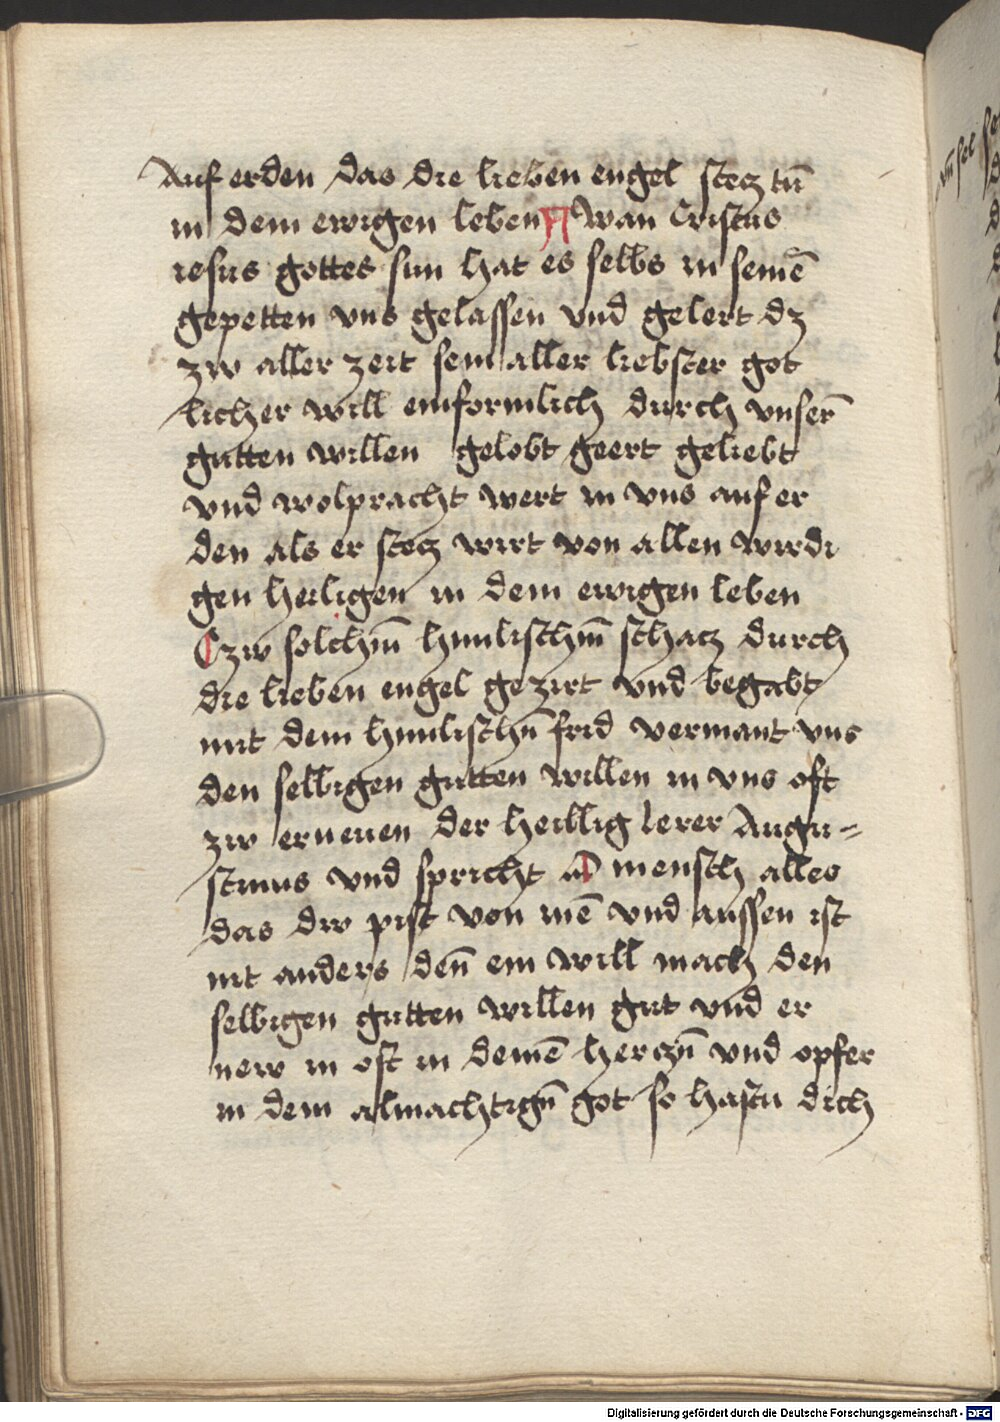 Auf erden das die lieben engel stecz tu̅
in dem ewigen leben Wan Cristus
iesus gottes sun hat es selbs in seine̅
gepetten vns gelassen vnd gelert dz
zw aller zeit sein aller liebster got
licher will einformlich durch vnser̅
gutten willen gelobt geert geliebt
vnd wolpracht wert in vns auf er
den als er stecz wirt von allen wirdi
gen heiligen in dem ewigen leben
zw solchm̅ himlischm̅ schacz durch
die lieben engel gezirt vnd begabt
mit dem himlischn̅ frid vermant vns
den selbigen gutten willen in vns oft
zw erneuen der heillig lerer Augu=
stinus vnd spricht O mensch alles
das dw pist von ine̅ vnd aussen ist
nit anders den̅ ein will mach den
selbigen gutten willen gut vnd er
new in oft in deine̅ herczn̅ vnd opfer
in dem almachtign̅ got so hastu dich
vn̅ sel
Digitalisierung gefördert durch die Deutsche Forschungsgemeinschaft - DFG